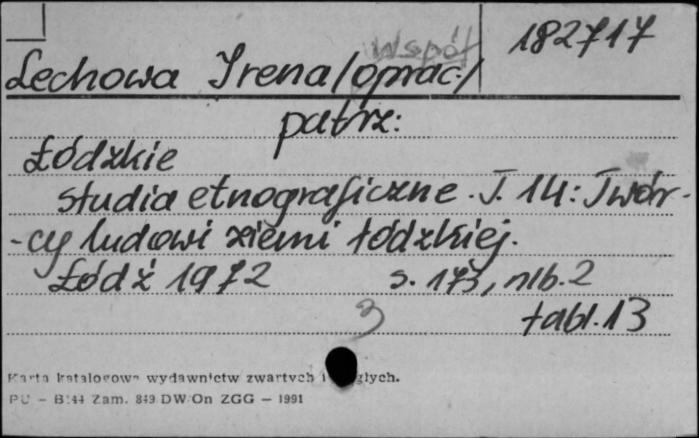 Współ 182717
Lechowa Irena/oprac./
patrz:
Łódzkie
studia etnograficzne. T. 14: Twór-
-cy ludowi ziemi łódzkiej.
Łódź 1972 s. 173, nlb. 2
3 tabl. 13
Karta katalogowa wydawnictw zwartych i
PU - B-44 Zam. 849 DW On ZGG - 1991